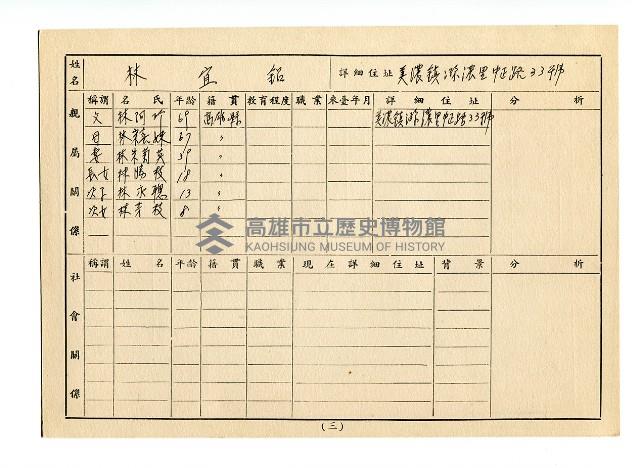 姓名 林宜鋁 詳細住址 美濃鎮瀰濃里中正路33號
親屬關係
稱謂 名氏 年齡 籍貫 教育程度 職業 來臺年月 詳細住址 分析
父 林阿 69 高雄縣 美濃鎮瀰濃里中正路33號
母 林宋 妹 67 〃
妻 林宋菊英 39 〃
長女 林 枝 18 〃
次子 林永聰 13 〃
次女 林芽枝 8 〃
高雄市立歷史博物館
KAOHSIUNG MUSEUM OF HISTORY
社會關係
稱謂 姓名 年齡 籍貫 職業 現在詳細住址 背景 分析
(三)